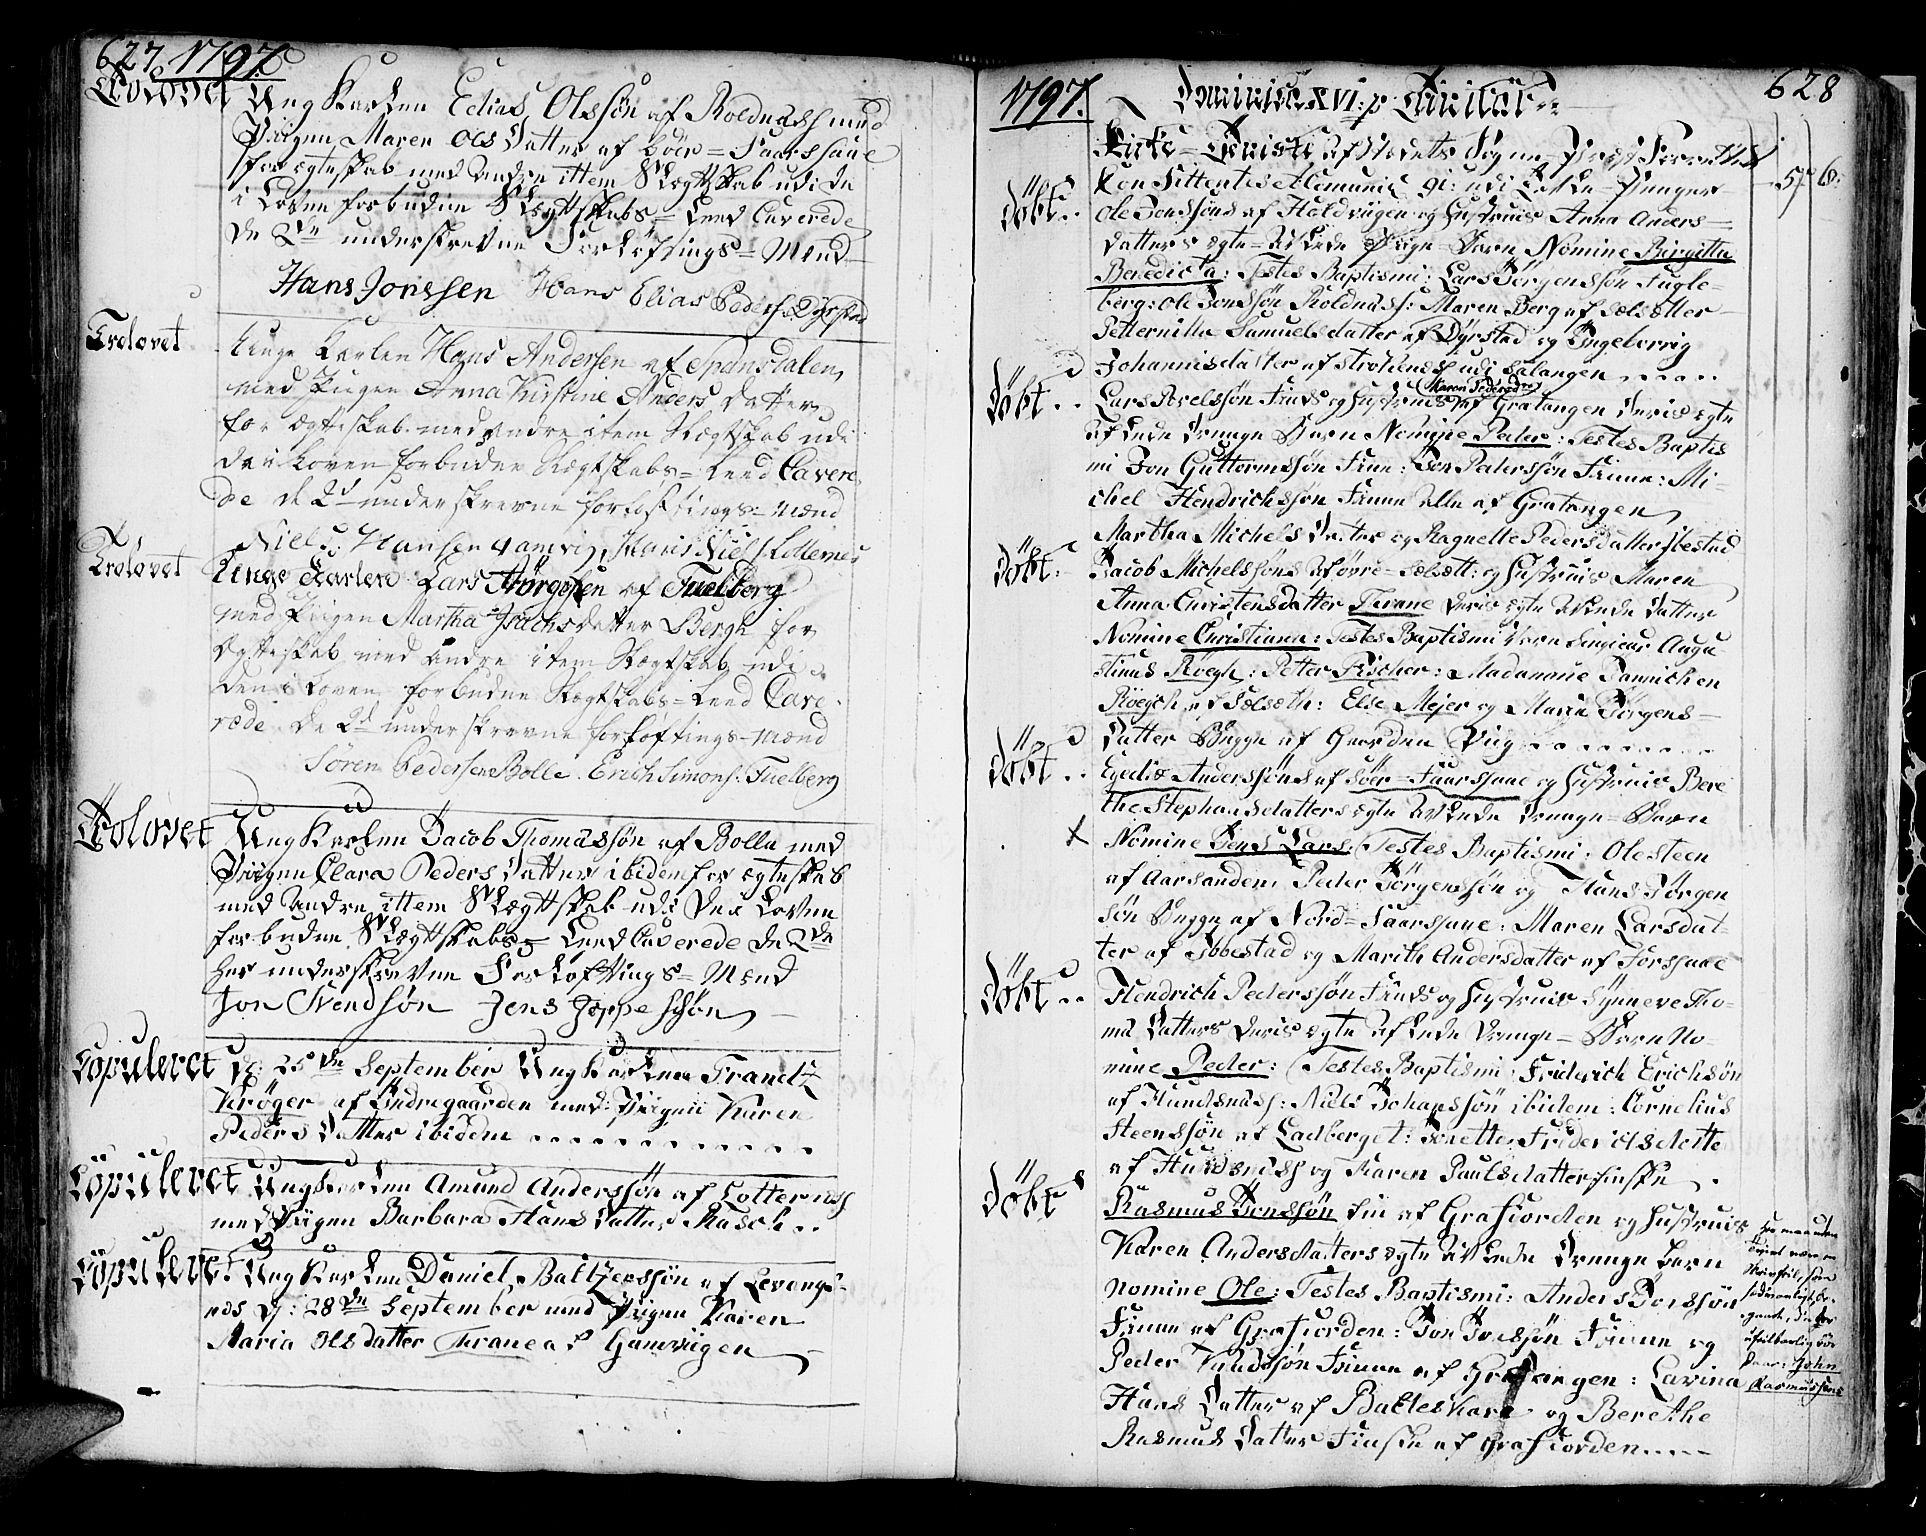 627. 1797.
Trolovet Ung Karlen Elias Olssøn af Roldnæss med
Piigen Maren Ols Datter af bøer=Faarsaue
for ægteskab med andre ittem Slegtskab udi de
i Loven forbudne Slegtskabs=Leed Caverede
de 2de underskrevne Forløftings=Mænd
Hans Jonssen Hans Elias Peders: Dyrstad
Trolovet
Unge Karlen Hans Andersen af Spansdalen,
med Piigen Anna Kirstine Anders Datter
for Ægteskab med andre item Slegtskab udi
de i Loven forbudne Slegtskabs=Leed Cavere
de de 2de underskrevne forløftings=mænd
Niels Hansen Gamvig, Hans Niels: Lillenes
Trolovet Unge Karlen Lars Hørgesen af Fuelberg
med Piigen Martha Isachsdatter Bergh for
Ægteskab med andre item Slegtskab udi
den i Loven forbudne Slegtskabs=Leed Cave-
rede de 2de underskrevne forløftings=mænd
Søren Pedersen Bolle. Erich Simons: Fuelberg
Trolovet Ung Karlen Jacob Thomassøn af Bolle med
Piigen Clara Peders Datter ibidem for ægteskab
med andre ittem Slegtskab udi de i Loven
forbudne Slegtskabs=Leed Caverede de 2de
her underskrevne Forløftings=Mænd
Jon Svendsøn Jens Jeppeschøn
Copuleret d: 25de September Ung Karlen Frandtz
Krøger af Indregaarden med Piigen Karen
Peders Datter ibidem
Copuleret Ung Karlen Amund Anderssøn af Lotternæs
med Piigen Barbara Hans Datter Rasch
Copuleret Ung Karlen Daniel Baltzerssøn af Levangs-
næs d: 28de September med Piigen Karen
Maria Olsdatter Trane af Gamviigen
1797. Dominica XVI: p Trinitat: 628
Kirke=Tieniste af Stedets Sogne Præst Herr
Confitentes et Communic 91: udi Tavle=Penger 5 6
døbt Ole Jonssøns af Holdviigen og Hustrues Anna Anders=
datters ægte=avlede Piige=Barn Nomine Birgitta
Benedicta: Testes Baptismi: Lars Børgenssøn Fugle-
berg: Ole Jonssøn Roldnæss: Maren Berg af Selsætter
Petternilla Samuelsdatter af Dyrstad og Ingeborrig
Johannisdatter af Strøksnes udi Salangen
døbt Lars Axelssøn Finds og Hustrues (Karen Pedersd.) af Gratangen deris ægte
avlede Drenge Barn Nomine Peder: Testes Baptis
mi Jon Guttormssøn Finn: Jon Peterssøn Finne: Mi-
chel Hendrichssøn Finne alle af Gratangen
Martha Michels Datter og Ragnette Pedersdatter Ibestad
døbt Jacob Michelssøns af øvre=Selsæt: og Hustrues Maren
Anna Christensdatter Trane deris ægte avlede Datter
Nomine Christiana: Testes Baptismi Augu-
stinus Røegh: Petter Fischer: Madamme Pannichen
Røegh af Selseth: Else Mejer og Maria Jørgens=
Datter Begge af Gaarden Vüg
døbt Egedie Anderssøns af Søer=Faarssaue og Hustrues Bere
the Stephansdatters ægte avlede Drenge=Barn
Nomine Jens Lars (Testes Baptismi: Ole Steen
af Aarsanden: Peder Børgenssøn og Hans Børgen
søn Begge af Nord=Faarssaue: Maren Larsdat-
ter af Ibbestad og Marith Andersdatter af Forssaae
døbt Hendrich Pederssøn Finds og Hustrues Synneve Tho-
mæ Datters deris ægte avlede Drenge=Barn No-
mine Peder: (Testes Baptismi: Friderich Erichsøn
af Hundsnæss: Niels Johanssøn ibidem: Cornelius
Steenssøn af Ladberget: Jonette Friderichsdatte
af Hundsnæss og Karen Paulsdatter Finske
døbt Rasmus Jonssøn Fin af Grafiorden og Hustrues
Karen Andersdatters ægte avlede Drenge Barn
nomine Ole: Testes Baptismi: Anders Joenssøn
Finne af Grafiorden: Jon Joessøn Finne og
Peder Knudssøn Finne af Gratangen: Lavina
Hans Datter af Balteskare og Berethe
Rasmus Datter Finske af Grafiorden
Her maa uden
tvivl være en
skrivfeil, som
sædvanligt be-
gaaet, da
ufeilbarlig bør
staae: John
Rasmussens